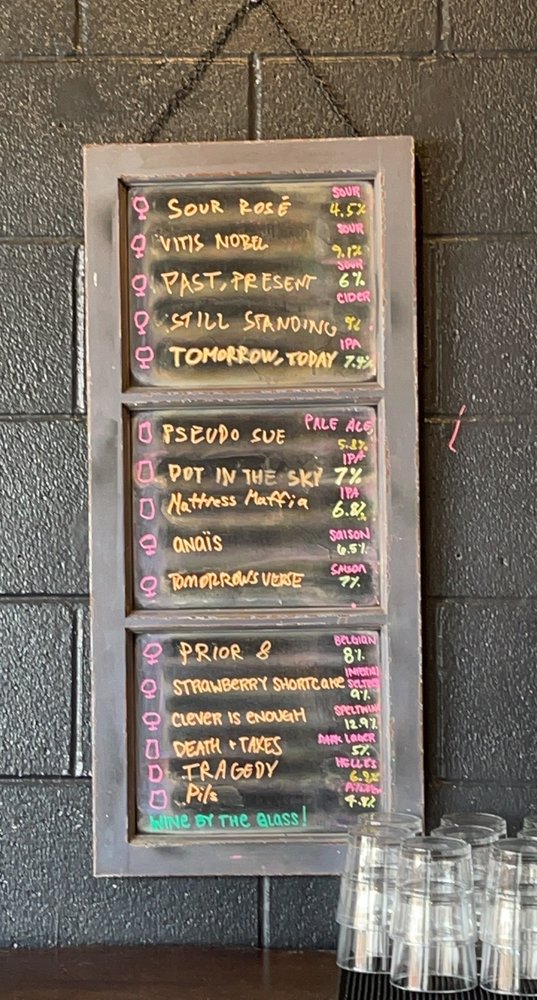 SOUR ROSÉ SOUR 4.5%
VITIS NOBEL SOUR 9.1%
PAST, PRESENT SOUR 6%
STILL STANDING CIDER 9%
TOMORROW, TODAY IPA 7.4%
PSEUDO SUE PALE ALE 5.8%
POT IN THE SKY IPA 7%
Mattress Maffia IPA 6.8%
ANAÏS SAISON 6.5%
TOMORROWS VERSE SAISON 7%
PRIOR 8 BELGIAN 8%
STRAWBERRY SHORTCAKE IMPERIAL SELTZER 9%
CLEVER IS ENOUGH SPELTWINE 12.9%
DEATH + TAXES DARK LAGER 5%
TRAGEDY HELLES
Pils PILSNER 4.8%
WINE BY THE GLASS!